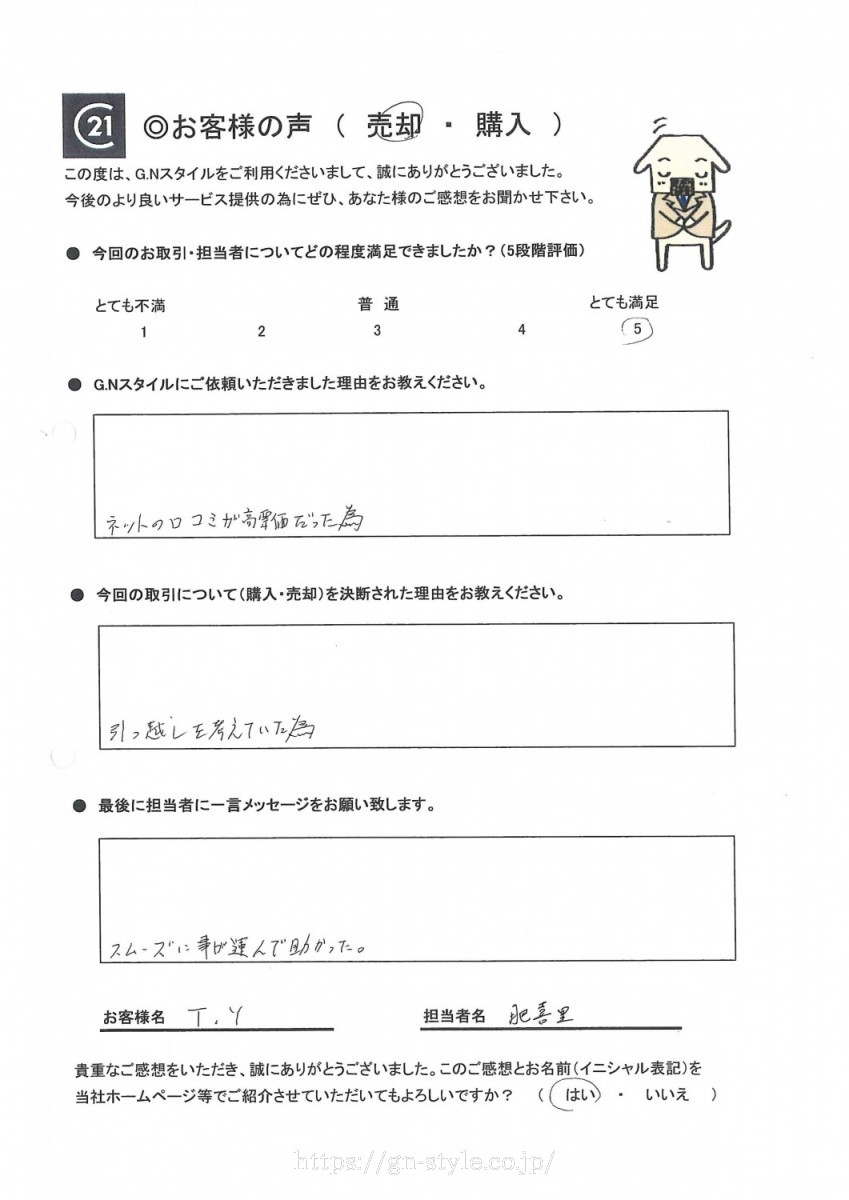 C21 ◎お客様の声 ( 売却 ・ 購入 )
この度は、G.Nスタイルをご利用くださいまして、誠にありがとうございました。
今後のより良いサービス提供の為にぜひ、あなた様のご感想をお聞かせ下さい。
● 今回のお取引・担当者についてどの程度満足できましたか?(5段階評価)
とても不満 普 通 とても満足
1 2 3 4 5
● G.Nスタイルにご依頼いただきました理由をお教えください。
ネットの口コミが高評価だった為
● 今回の取引について(購入・売却)を決断された理由をお教えください。
引っ越しを考えていた為
● 最後に担当者に一言メッセージをお願い致します。
スムーズに事が運んで助かった。
お客様名 T.Y 担当者名 肥喜里
貴重なご感想をいただき、誠にありがとうございました。このご感想とお名前(イニシャル表記)を
当社ホームページ等でご紹介させていただいてもよろしいですか? ( はい ・ いいえ )
https://gn-style.co.jp/